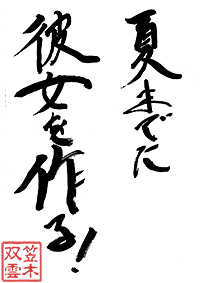 夏までに
彼女を作る!
笠木
双雲